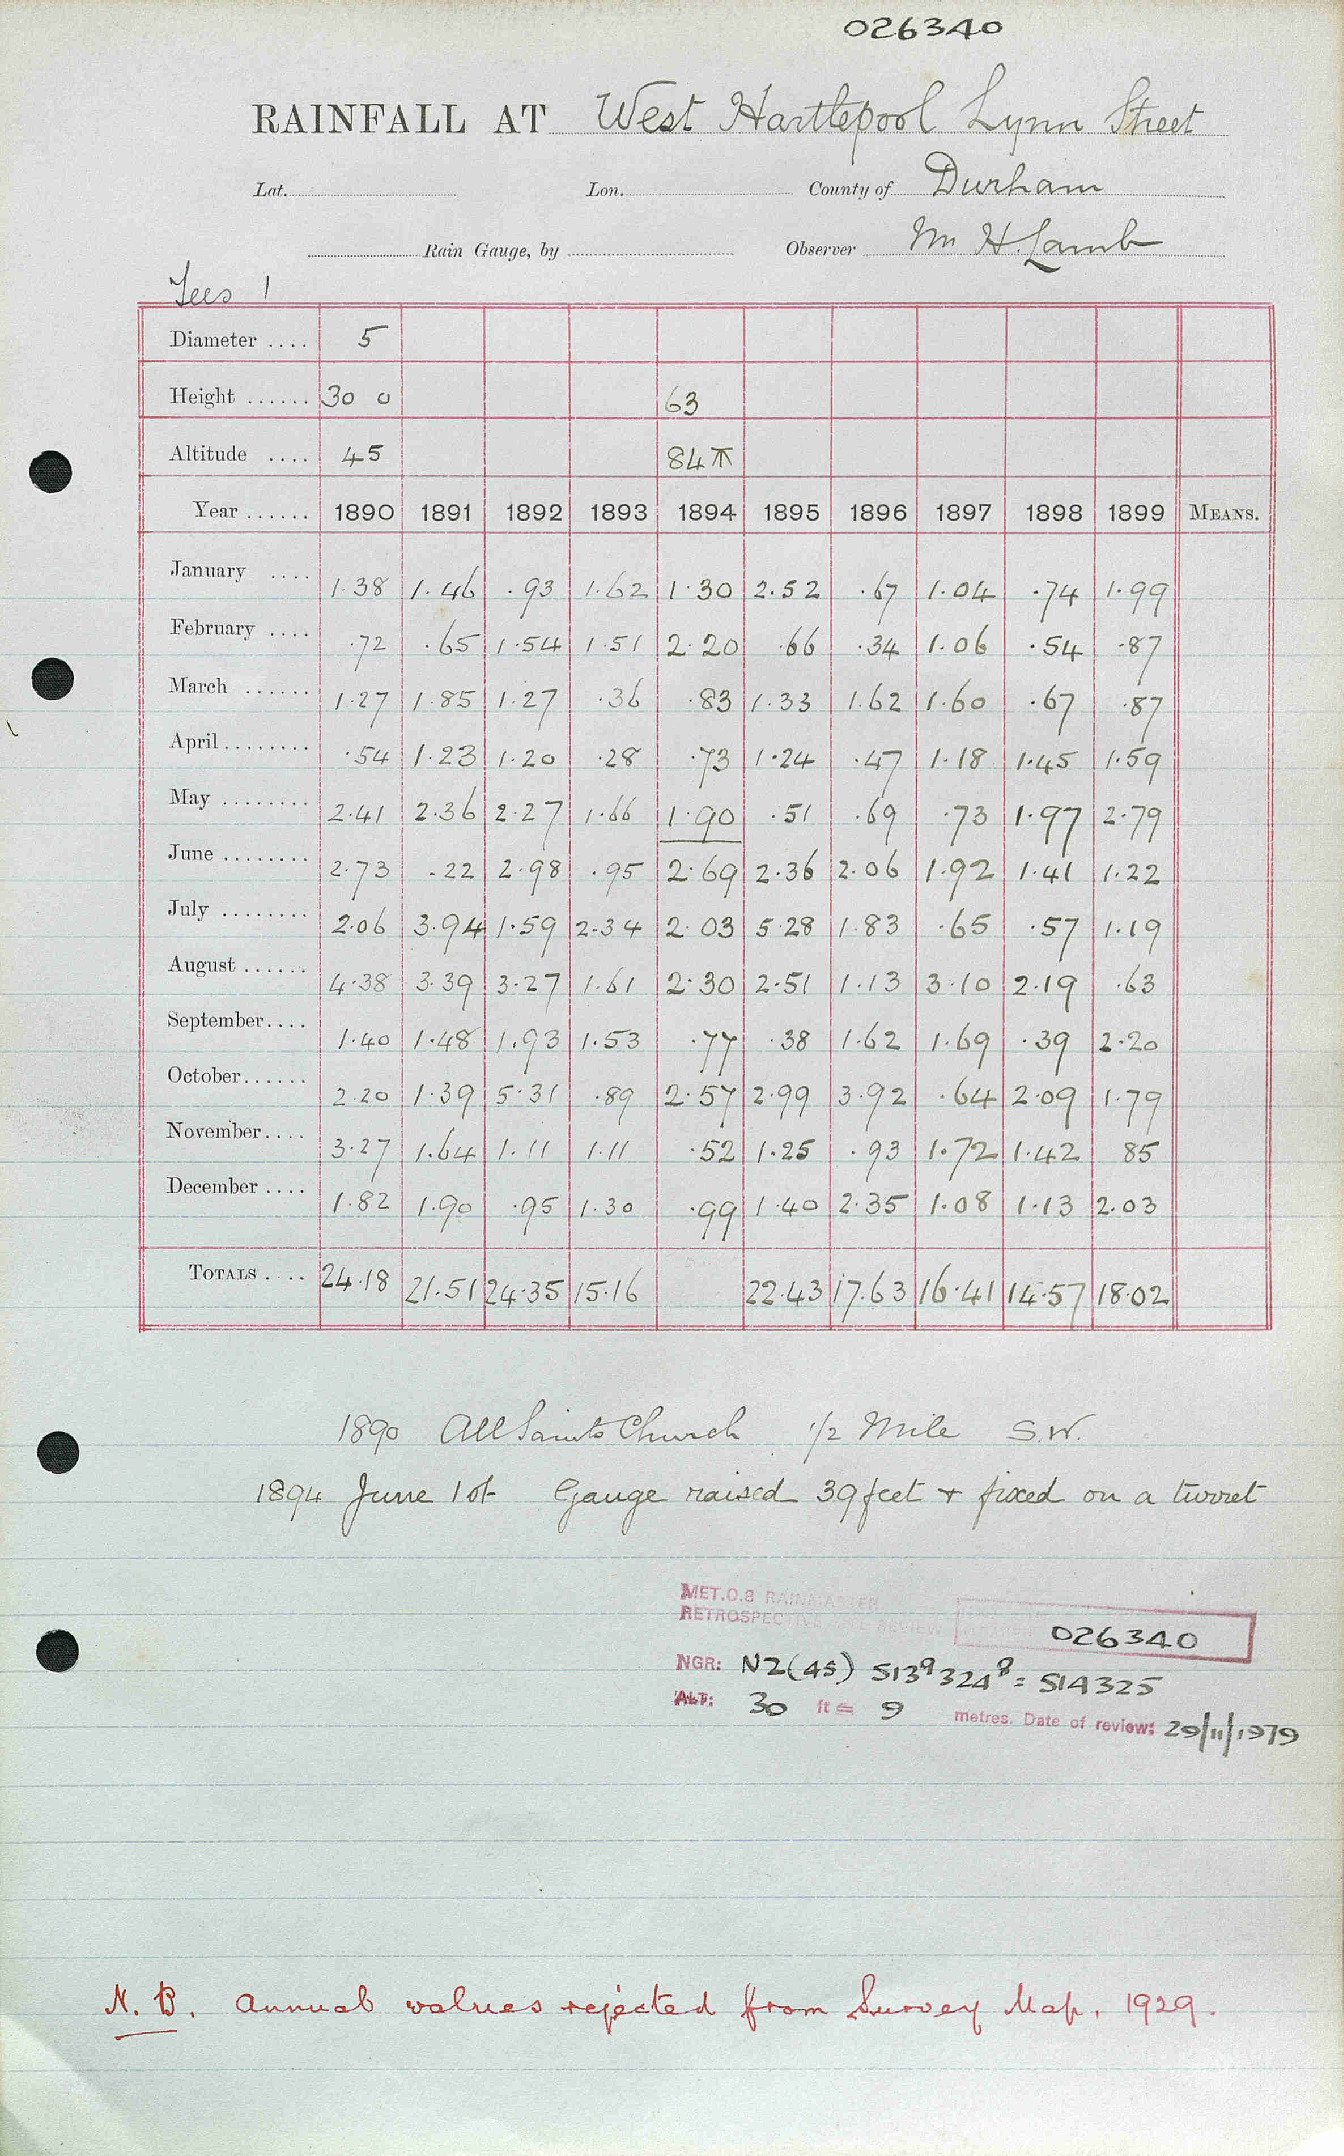 026340
RAINFALL AT West Hartlepool Lynn Street
Lat. Lon. County of Durham
Rain Gauge, by Observer Mr H. Lamb
Tees 1
Diameter .... 5
Height ...... 30 0 63
Altitude .... 45 84
Year ...... 1890 1891 1892 1893 1894 1895 1896 1897 1898 1899 MEANS.
January .... 1.38 1.46 .93 1.62 1.30 2.52 .67 1.04 .74 1.99
February .... .72 .65 1.54 1.51 2.20 .66 .34 1.06 .54 .87
March ...... 1.27 1.85 1.27 .36 .83 1.33 1.62 1.60 .67 .87
April ........ .54 1.23 1.20 .28 .73 1.24 .47 1.18 1.45 1.59
May ........ 2.41 2.36 2.27 1.66 1.90 .51 .69 .73 1.97 2.79
June ........ 2.73 .22 2.98 .95 2.69 2.36 2.06 1.92 1.41 1.22
July ........ 2.06 3.94 1.59 2.34 2.03 5.28 1.83 .65 .57 1.19
August ...... 4.38 3.39 3.27 1.61 2.30 2.51 1.13 3.10 2.19 .63
September.... 1.40 1.48 1.93 1.53 .77 .38 1.62 1.69 .39 2.20
October...... 2.20 1.39 5.31 .89 2.57 2.99 3.92 .64 2.09 1.79
November.... 3.27 1.64 1.11 1.11 .52 1.25 .93 1.72 1.42 85
December .... 1.82 1.90 .95 1.30 .99 1.40 2.35 1.08 1.13 2.03
TOTALS .... 24.18 21.51 24.35 15.16 22.43 17.63 16.41 14.57 18.02
1890 All Saints Church 1/2 Mile S.W.
1894 June 1st Gauge raised 39 feet + fixed on a turret
MET.O.8 RAINMASTER
RETROSPECTIVE REVIEW 026340
NGR: NZ(45) 513⁹324⁸ = 514325
ALT: 30 ft = 9 metres. Date of review: 29/11/1979
N.B. Annual values rejected from Survey Map, 1929.